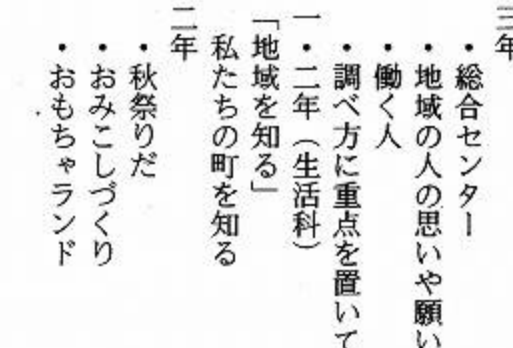 三年
・総合センター
・地域の人の思いや願い
・働く人
・調べ方に重点を置いて
一・二年（生活科）
「地域を知る」
私たちの町を知る
二年
・秋祭りだ
・おみこしづくり
・おもちゃランド